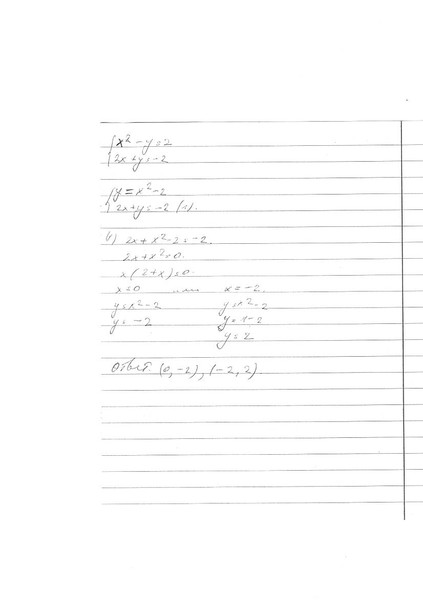 {x² - y = 2
{2x + y = -2
{y = x² - 2
{2x + y = -2 (1).
(1) 2x + x² - 2 = -2.
2x + x² = 0.
x(2 + x) = 0.
x = 0 или x = -2.
y = x² - 2 y = x² - 2
y = -2 y = 4 - 2
y = 2
Ответ (0, -2), (-2, 2)